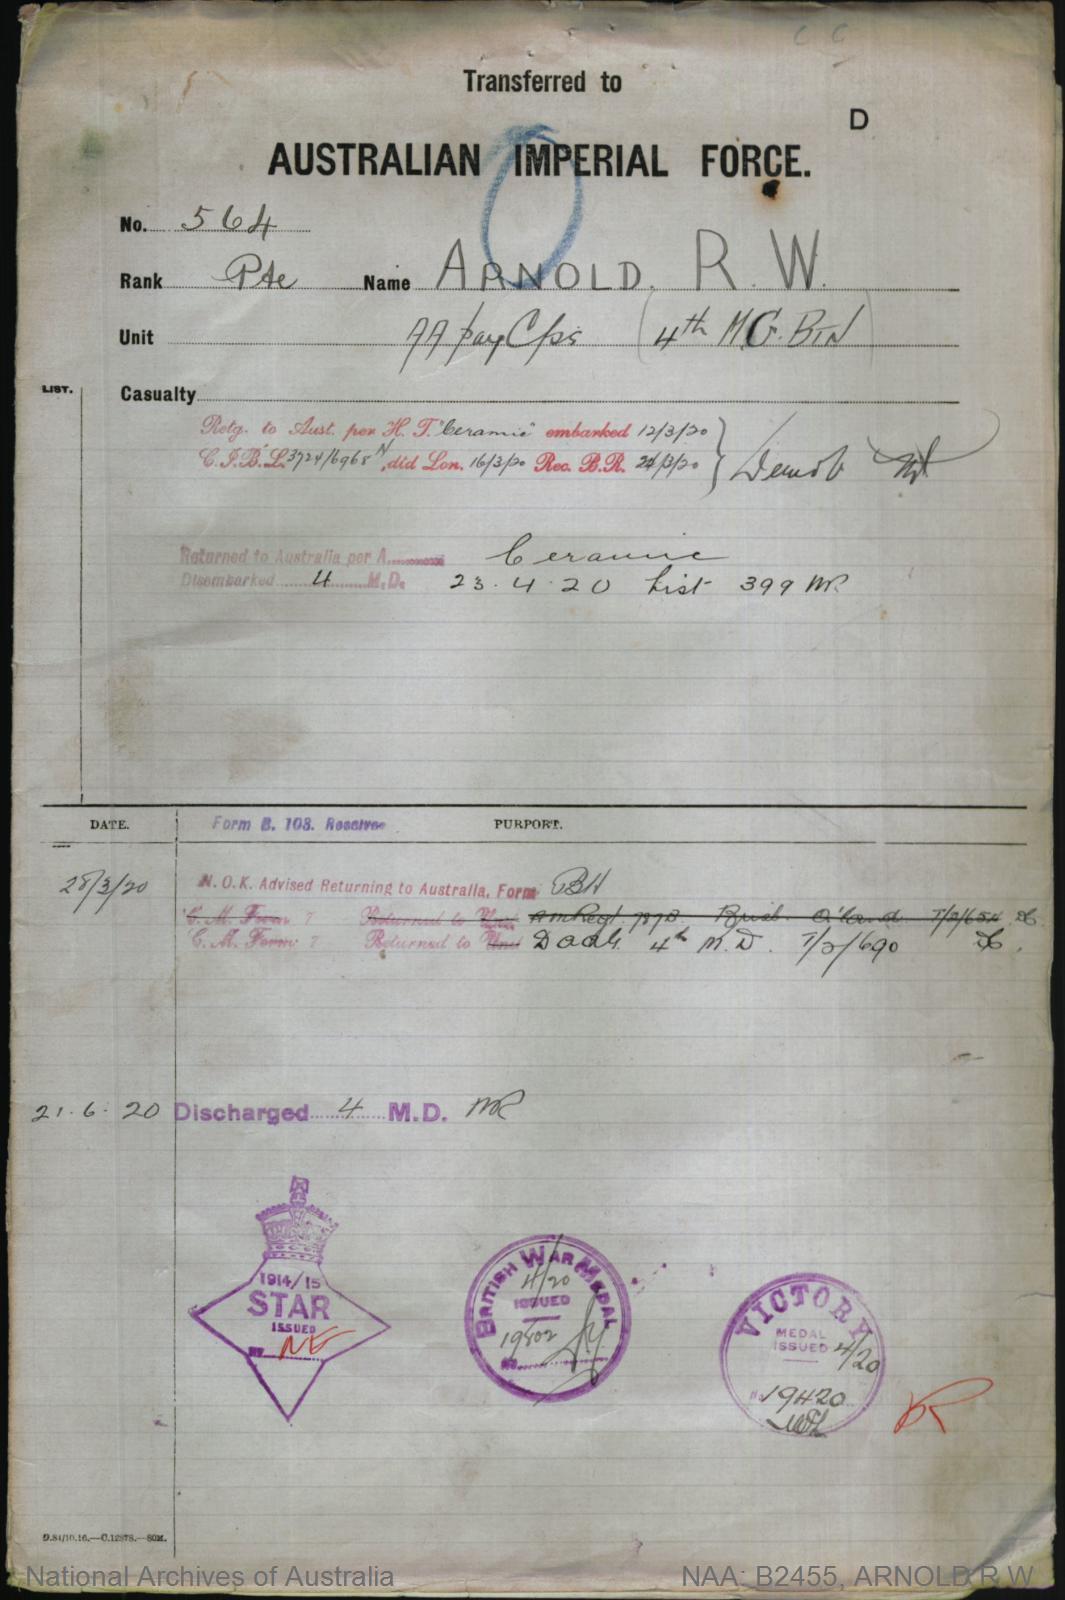 Transferred to
D
AUSTRALIAN IMPERIAL FORCE.
No. 564
Rank Pte Name ARNOLD. R. W.
Unit AA Pay Cps (4th M.G. BTN)
LIST.
Casualty
Retg. to Aust. per H. T. "Ceramic" embarked 12/3/20
C.I.B.L. 3724/6968 N, dtd Lon. 16/3/20 Rec. B.R. 24/3/20 } Demob
Returned to Australia per A. Ceramic
Disembarked 4 M.D. 23.4.20 List 399 MR
DATE. Form B. 103. Receive PURPORT.
28/3/20 N.O.K. Advised Returning to Australia, Form BH
C. M. Form 7 Returned to Unit
C. M. Form 7 Returned to Unit DAAG. 4th M.D. 7/2/690
21.6.20 Discharged 4 M.D. MR
1914/15
STAR
ISSUED
No NE
BRITISH WAR MEDAL
4/20
ISSUED
19502
No
VICTORY
MEDAL
ISSUED 4/20
No 19420
D.84/10.16.—C.12878.—80M.
National Archives of Australia NAA: B2455, ARNOLD R W